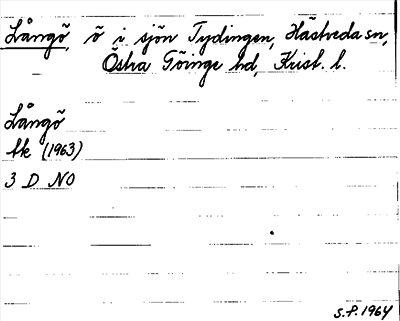 Långö, ö i sjön Tydingen, Hästveda sn,
Östra Göinge hd, Krist. l.
Långö
Ek (1963)
3 D NO
S.P. 1964